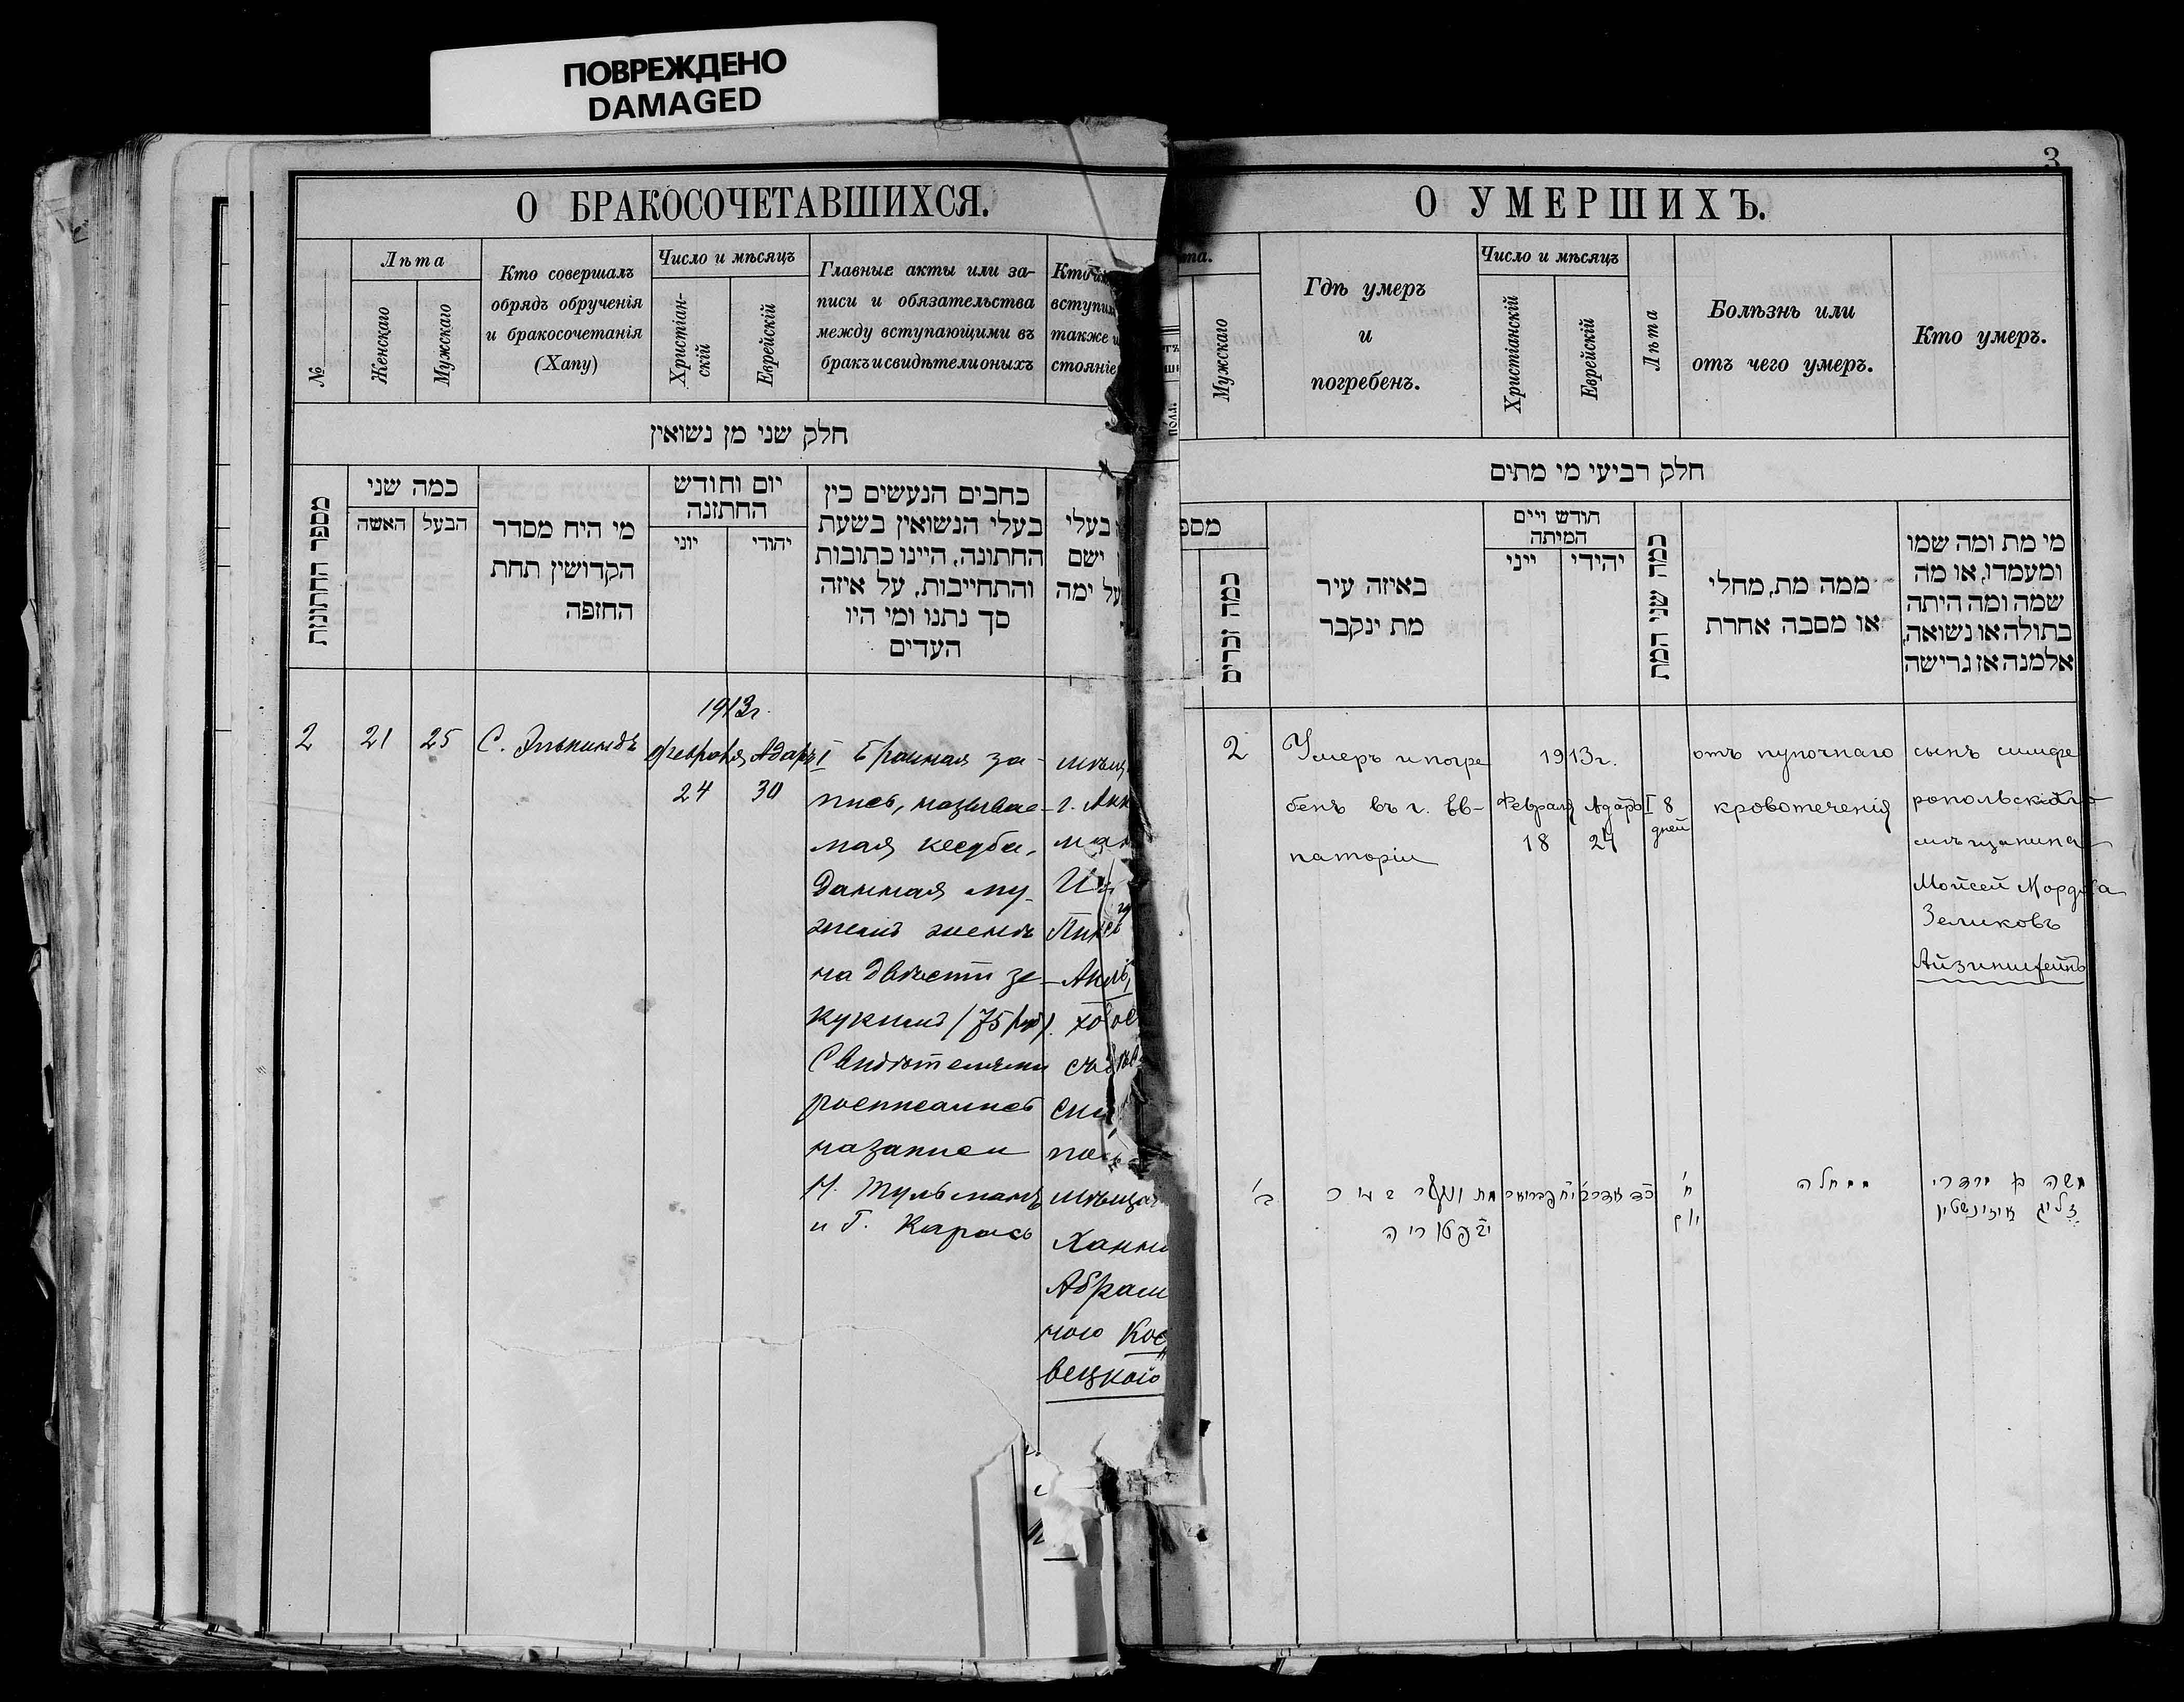 ПОВРЕЖДЕНО
DAMAGED
О БРАКОСОЧЕТАВШИХСЯ.
№
Лѣта
Женскаго
Мужскаго
Кто совершалъ
обрядъ обрученія
и бракосочетанія
(Хапу)
Число и мѣсяцъ
Христіан-
скій
Еврейскій
Главные акты или за-
писи и обязательства
между вступающими въ
бракъ и свидѣтели оныхъ
Кто
вступи
также и
стояніе
חלק שני מן נשואין
מספר החתונות
כמה שני
האשה
הבעל
מי היח מסדר
הקדושין תחת
החופה
יום וחודש
החתונה
יוני
יהודי
כתבים הנעשים בין
בעלי הנשואין בשעת
החתונה, היינו כתובות
והתחייבות, על איזה
סך נתנו ומי היו
העדים
בעלי
ישם
על ימה
2
21
25
С. Элькиндъ
1913г.
Февраля
24
Адаръ I
30
Брачная за-
пись, называе-
мая кесуба,
данная му-
жемъ женѣ
на двѣсти зе-
кукимъ (75 руб).
Свидѣтелями
росписались
на записи
М. Тульманъ
и Г. Карась
мѣщ
г. Акк
ман
холос
съ
сим
по
мѣщан
Ханн
Абрам
ного Кос
вецкаго
3
О УМЕРШИХЪ.
та.
Мужскаго
Гдѣ умеръ
и
погребенъ.
Число и мѣсяцъ
Христіанскій
Еврейскій
Лѣта
Болѣзнь или
отъ чего умеръ.
Кто умеръ.
חלק רביעי מי מתים
מספ
כמה זכרים
באיזה עיר
מת ינקבר
חודש ויים
המיתה
ייני
יהידי
כמה שני המת
ממה מת, מחלי
או מסבה אחרת
מי מת ומה שמו
ומעמדו, או מה
שמה ומה היתה
בתולה או נשואה,
אלמנה או גרישה
2
Умеръ и погре
бенъ въ г. Ев-
паторіи
1913г.
Февраля
18
Адаръ I
24
8
дней
отъ пупочнаго
кровотеченія
сынъ симфе
ропольскаго
мѣщанина
Мойсей Мордха
Зеликовъ
Айзинштейнъ
ב'
מת ונקבר
כד אדר
ח'
יום
ממחלה
משה בן מרדכי
זליג איזינשטיין